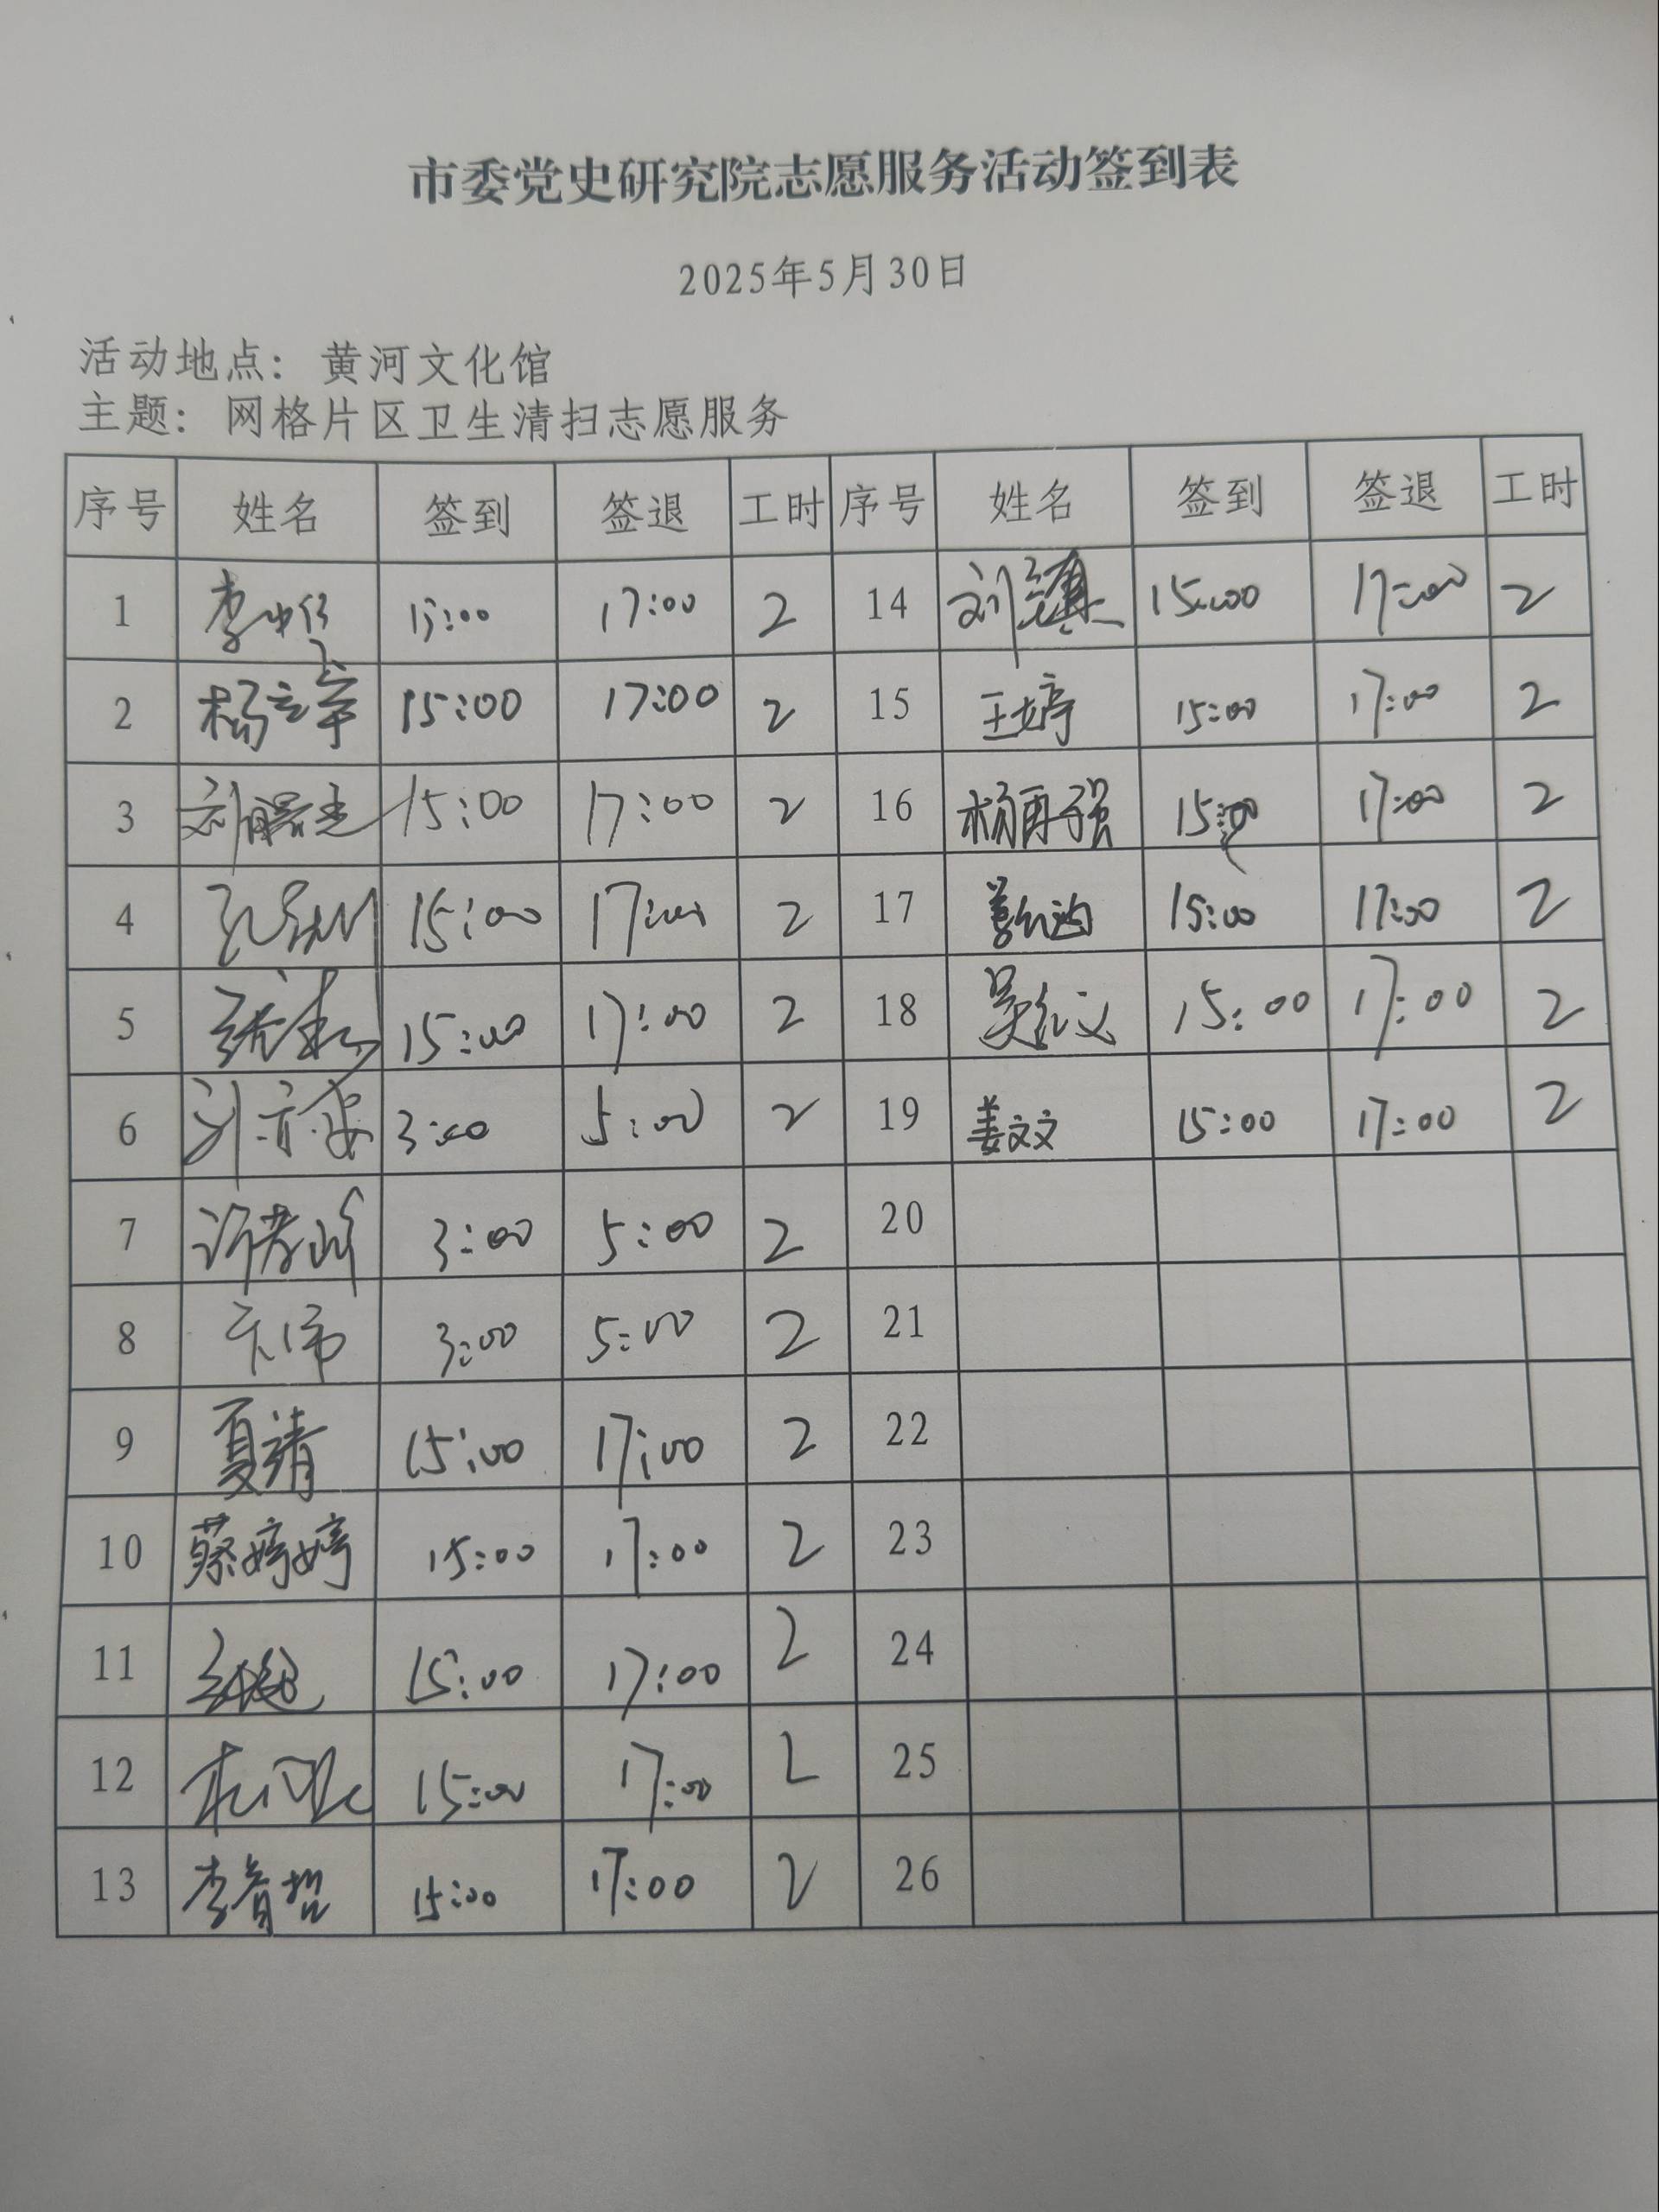 市委党史研究院志愿服务活动签到表
2025年5月30日
活动地点：黄河文化馆
主题：网格片区卫生清扫志愿服务
序号 姓名 签到 签退 工时 序号 姓名 签到 签退 工时
1 15:00 17:00 2 14 15:00 17:00 2
2 15:00 17:00 2 15 王婷 15:00 17:00 2
3 15:00 17:00 2 16 杨再强 15:00 17:00 2
4 15:00 17:00 2 17 15:00 17:00 2
5 15:00 17:00 2 18 15:00 17:00 2
6 3:00 5:00 2 19 姜文文 15:00 17:00 2
7 3:00 5:00 2 20
8 3:00 5:00 2 21
9 夏靖 15:00 17:00 2 22
10 蔡婷婷 15:00 17:00 2 23
11 15:00 17:00 2 24
12 15:00 17:00 2 25
13 李哲 15:00 17:00 2 26